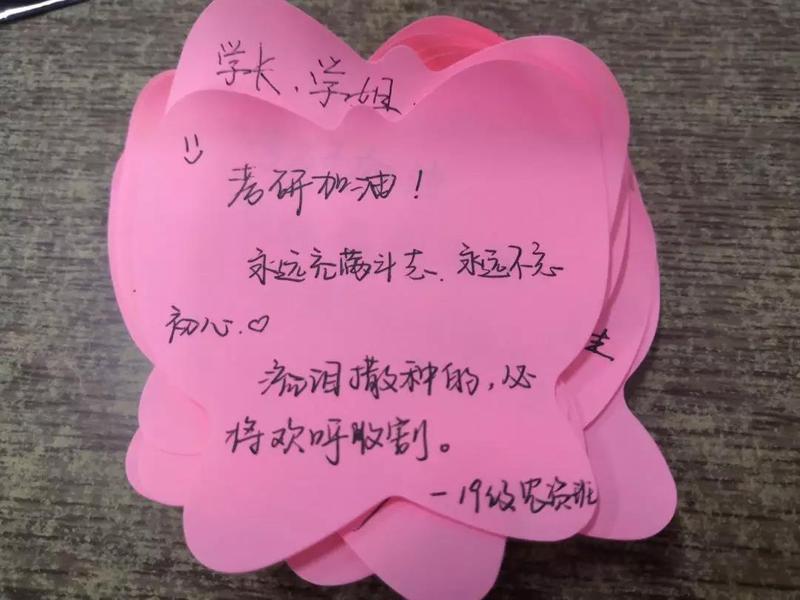 学长、学姐.
考研加油！
永远充满斗志、永远不忘
初心.♡
流泪撒种的，必
将欢呼收割。
—19级农资班